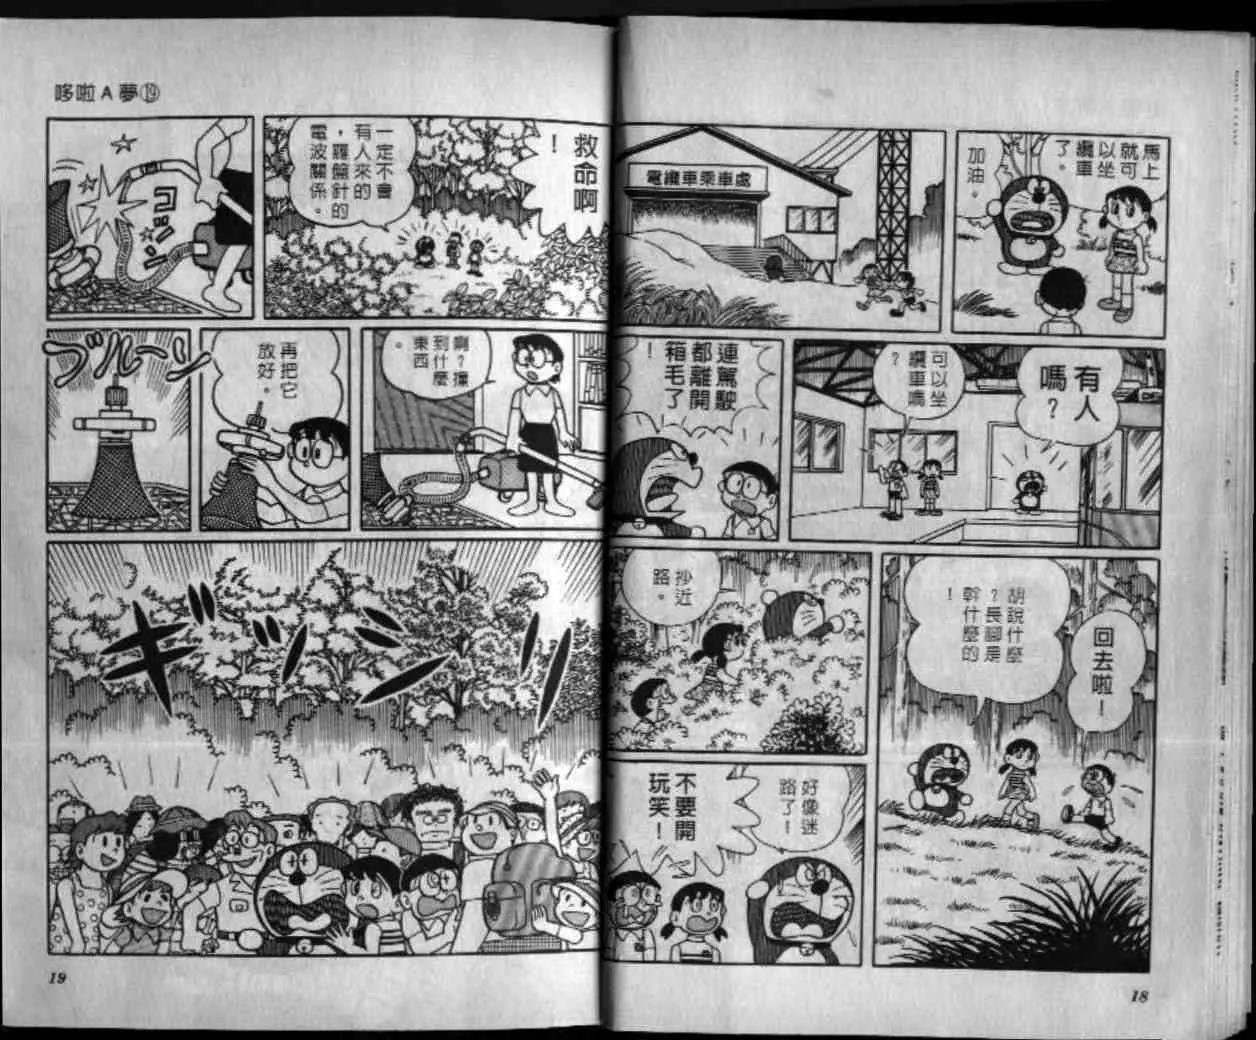 馬上
就可
以坐
纜車
了。
加油。
電纜車乘車處
有人
嗎？
可以坐
纜車嗎
？
連駕駛
都離開
箱毛了
！
回去啦！
胡說什麼
？長腳是
幹什麼的
！
抄近
路。
好像迷
路了！
不要開
玩笑！
18
哆啦A夢⑲
救命啊
！
一定不會
有人來的
，羅盤針的
電波關係。
ゴツン
啊？撞
到什麼
東西
。
再把它
放好。
ブルーン
19